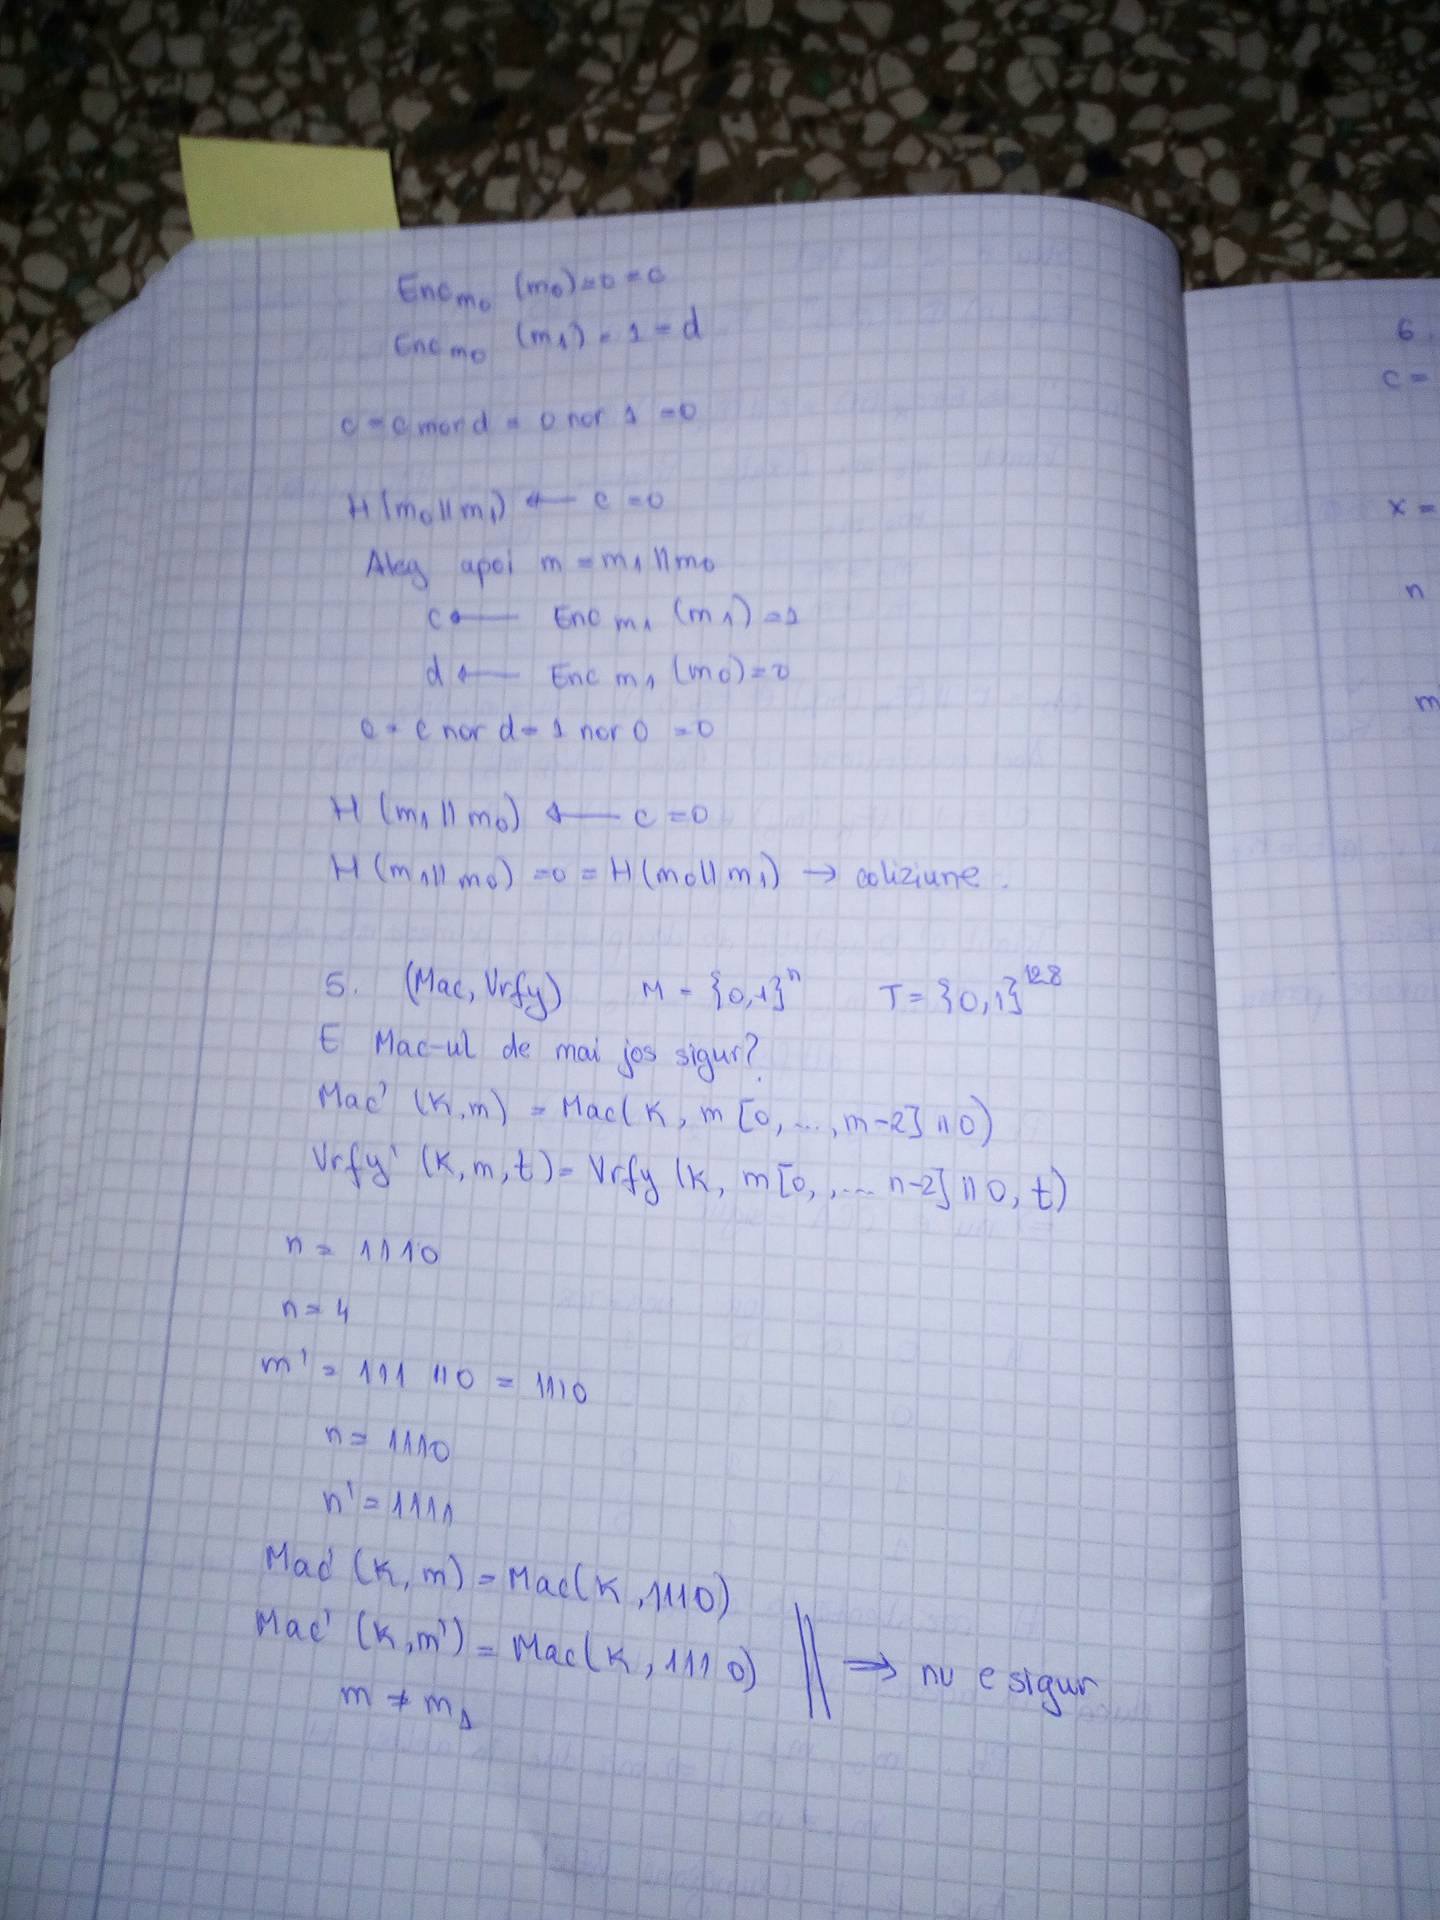 Enc m0 (m0)=0=c
Enc m0 (m1)=1=d
c=c nor d = 0 nor 1 =0
H(m0||m1) ← c=0
Aleg apoi m=m1||m0
c ← Enc m1 (m1)=1
d ← Enc m1 (m0)=0
c=c nor d=1 nor 0 =0
H(m1||m0) ← c=0
H(m1||m0)=0=H(m0||m1) → coliziune.
5. (Mac, Vrfy) M={0,1}^n T={0,1}^128
E Mac-ul de mai jos sigur?
Mac' (K,m) = Mac(K, m[0,...,m-2]||0)
Vrfy' (K,m,t)= Vrfy (K, m[0,,... n-2]||0, t)
n= 1110
n=4
m'= 111 ||0 = 1110
n= 1110
n'=1111
Mac' (K,m) =Mac(K,1110)
Mac' (K,m') =Mac(K,1110) ⇒ nu e sigur
m≠m1
6.
c=
x=
n
m